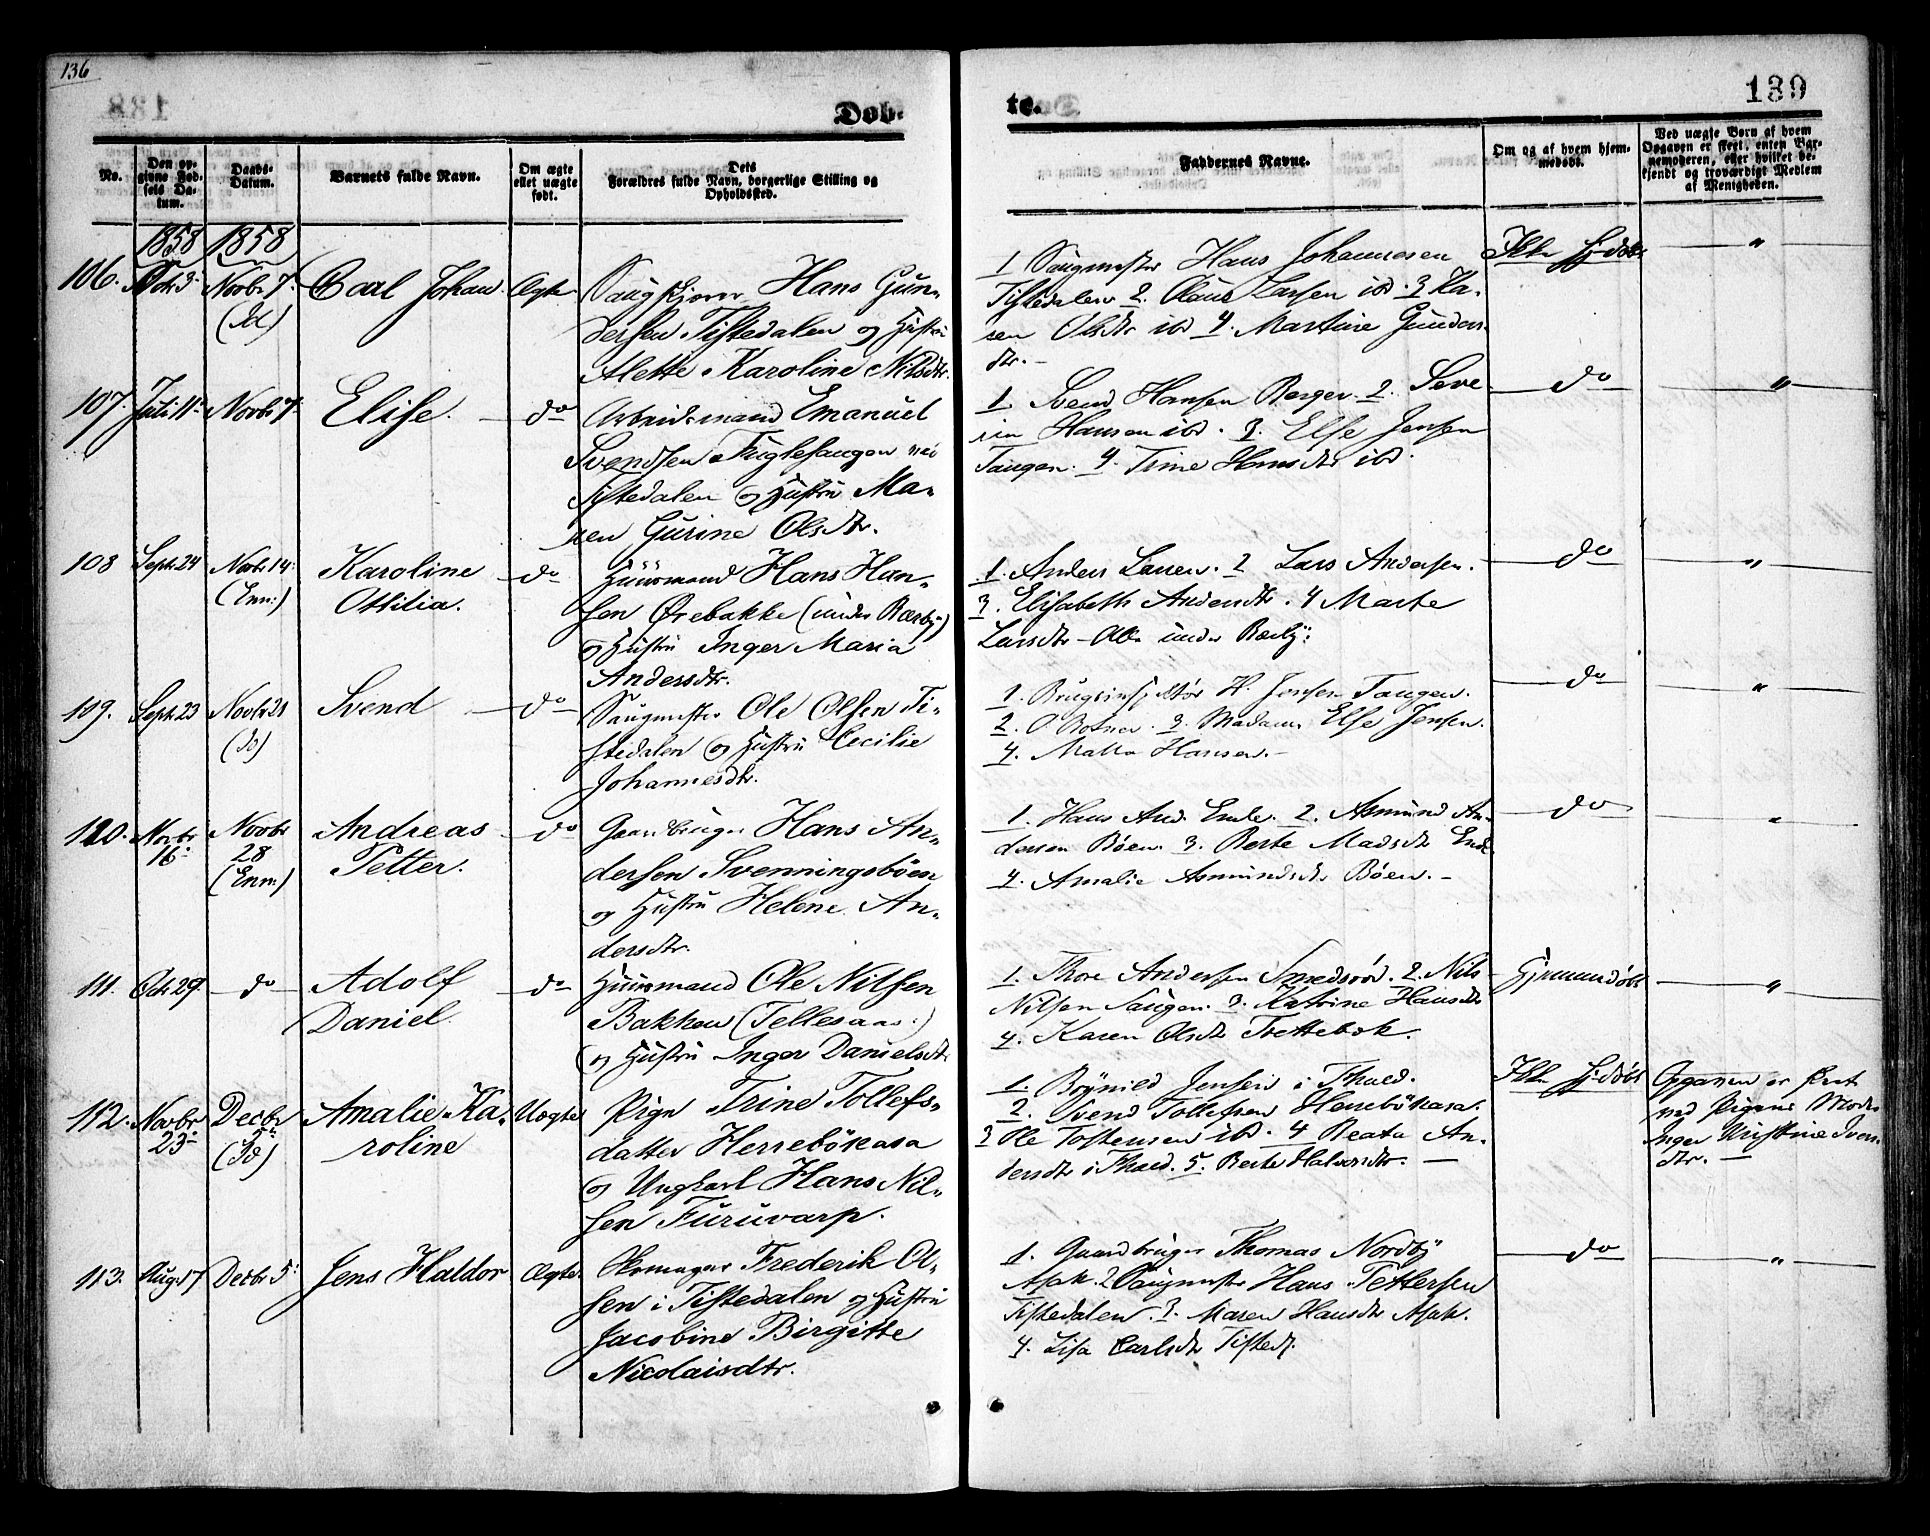 136
139
Døb-
te.
No.
Den op-
givne Fød-
sels Da-
tum.
Daabs-
Datum.
Barnets fulde Navn.
Om ægte
ellet uægte
født.
Dets
Forældres fulde Navn, borgerlige Stilling og
Opholdssted.
Faddernes Navne.
Om og af hvem hjem-
medøbt.
Ved uægte Børn af hvem
Opgaven er skeet, enten Bar-
nemoderen, eller hvilket be-
kjendt og troværdigt Medlem
af Menigheden.
1858 1858
106. Octr 3 Novbr 7 Carl Johan Ægte Saugskjærer Hans Gun-
dersen Tistedalen og Hustru
Alette Karoline Nilsdtr.
1 Saugmester Hans Johannesen
Tistedalen 2. Olaus Larsen ibd. 3 Ka-
ren Olsdtr ibd 4. Martine Gunders-
dtr. -
Ikke hj-døbt
"
107. Juli 11 Novbr 7 Elise. do Arbeidsmand Emanuel
Svendsen Fuglesangen ved
Tistedalen og Hustru Ma-
ren Gurine Olsdtr.
1. Svend Hansen Berger. 2. Seve-
rin Hansen ibd. 3. Else Jensen
Tangen. 4. Trine Hansdtr ibd.
do "
108 Septr 24 Novbr 14 (Enn:) Karoline
Ottilia.
do Huusmand Hans Han-
sen Ørebakke (under Bærby)
og Hustru Inger Maria
Andersdtr.
1. Anders Larsen. 2 Lars Andersen.
3. Elisabeth Andersdtr. 4 Marte
Larsdtr - Alle under Bærby.
do "
109. Septr 23 Novbr 21 (do) Svend do Saugmester Ole Olsen Ti-
stedalen og Hustru Cecilie
Johannesdtr.
1. Brugsinspektør H. Jensen Tangen.
2. O Botner. 3. Madame Else Jensen.
4. Hansen. -
do "
110. Novbr
16
Novbr
28
(Enn:)
Andreas
Petter.
do Gaardbruger Hans An-
dersen Svenningsbøen
og Hustru Helene An-
dersdtr.
1. Hans And. Ende. 2. Asmund An-
dersen Bøen. 3. Berte Madsdtr Ende
4. Amalie Asmundsdtr Bøen. -
do "
111. Octr 29. do Adolf
Daniel.
do Huusmand Ole Nilsen
Bakken (Tellesaas:)
og Hustru Inger Danielsdtr
1. Thore Andersen Smedsrød. 2. Nils
Nilsen Saugen. 3. Katrine Hansdtr
4. Karen Olsdtr Trettebæk.
Hjemmedøbt "
112. Novbr
23
Decbr
5
(do)
Amalie Ka-
roline
Uægte Pige Trine Tollefs-
datter Herrebøkasa
og Ungkarl Hans Nil-
sen Furuvarp.
1. Jensen i Fhald.
2. Svend Tollefsen Herrebøkasa.
3 Ole Tostensen ibd. 4 Beata An-
dersdtr i Fhald. 5. Berte Halvorsdtr. -
Ikke hj-døbt
Opgaven er skeet
ved Pigens Moder
Inger Kristine Svens
dtr. -
113. Aug 17 Decbr 5 Jens Haldor Ægte. Skomager Frederik Ol-
sen i Tistedalen og Hustru
Jacobine Birgitte
Nicolaisdtr.
1. Gaardbruger Thomas Nordby
Asak. 2 Saugmester Hans Pettersen
Tistedalen. 3. Maren Hansdtr Asak.
4. Lisa Carlsdtr Tisted.
do "